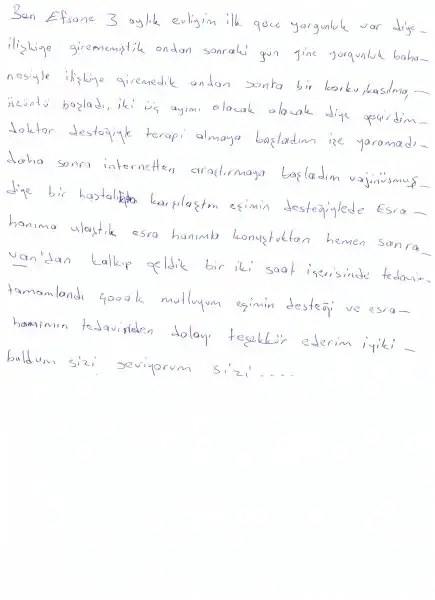 Ben Efsane 3 aylık evliyim ilk gece yorgunluk var diye -
ilişkiye girememiştik ondan sonraki gün yine yorgunluk baha -
nesiyle ilişkiye giremedik ondan sonra bir korku, kasılma, -
üzüntü başladı, iki üç ayımı olacak olacak diye geçirdim -
doktor desteğiyle terapi almaya başladım işe yaramadı -
daha sonra internetten araştırmaya başladım vajinüsmüs -
diye bir hastalıkla karşılaştım eşimin desteğiylede Esra -
hanıma ulaştık esra hanımla konuştuktan hemen sonra
van'dan kalkıp geldik bir iki saat içerisinde tedavim -
tamamlandı çooook mutluyum eşimin desteği ve esra -
hanımın tedavisinden dolayı teşekkür ederim iyiki -
buldum sizi seviyorum sizi ....